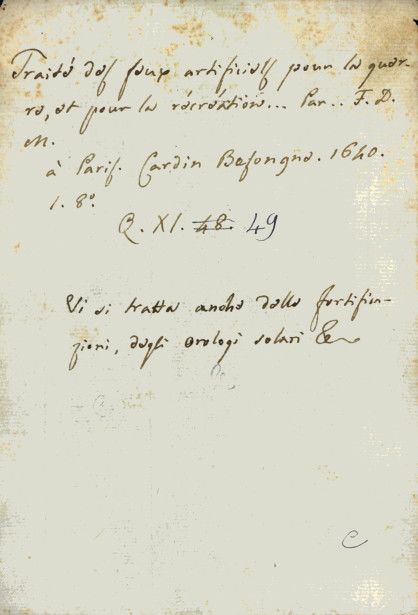 Traité des feux artificiels pour la guer-
re, et pour la récréation... Par.. F. D.
M.
à Paris. Cardin Besongne. 1640.
1. 8º.
Q. XI. 48. 49
Vi si tratta anche delle fortifica-
zioni, degli orologi solari &c
C